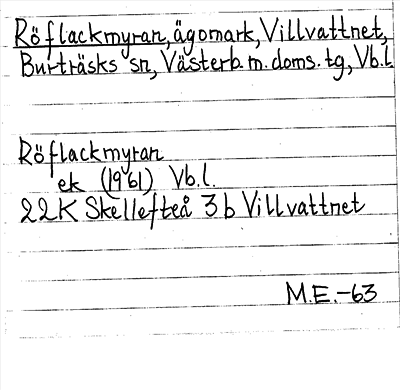 Röflackmyran, ägomark, Villvattnet,
Burträsks sn, Västerb. m. doms. tg, Vb.l.
Röflackmyran
ek (1961) Vb.l.
22K Skellefteå 3b Villvattnet
M.E.-63